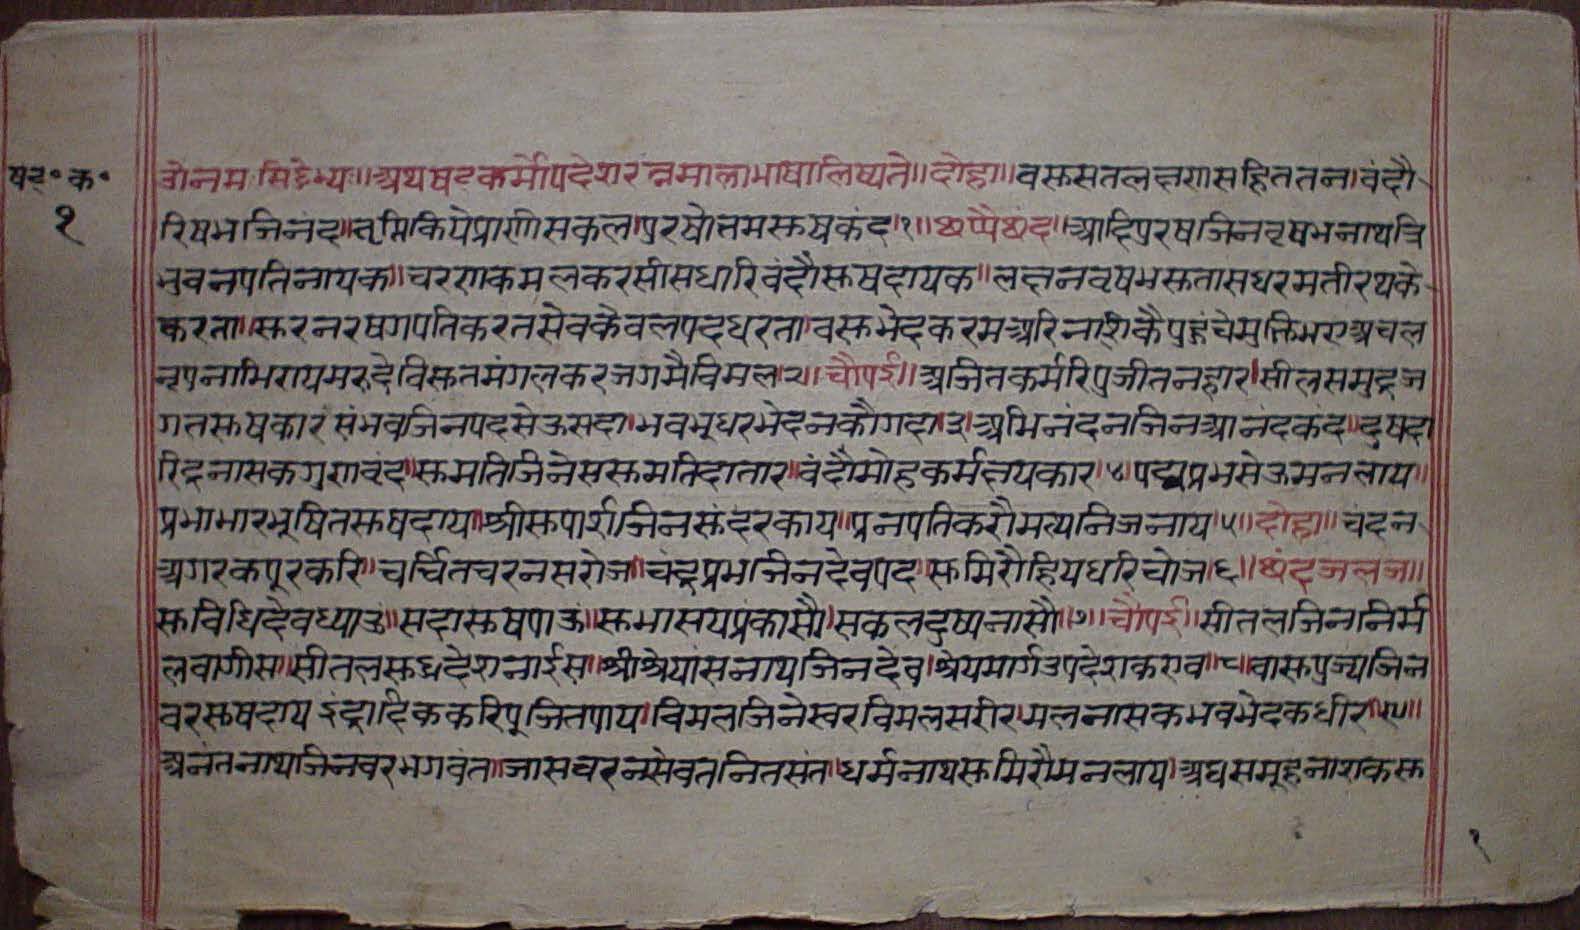 षट॰ क॰
१
ओंनमः सिद्धेभ्यः॥ अथ षट्कर्मोपदेशरत्नमाला भाषा लिष्यते॥ दोहा॥ वसु सत लक्षण सहित तन। वंदौ
रिषभ जिनंद॥ तृप्ति किये प्राणी सकल। पुरषोत्तम सुषकंद।१॥ छप्पैछंद॥ आदिपुरष जिन वृषभनाथ त्रि
भुवनपति नायक॥ चरण कमल कर सीस धारि वंदौ सुषदायक॥ लक्षन वृषभ सुतास धरम तीरथ के
करता॥ सुर नर षगपति करत सेव केवल पद धरता। वसु भेद करम अरि नाशि कै पहुंचे मुक्ति भए अचल
नृप नाभिराय मरुदेवि सुत मंगल कर जग मै विमल।२॥ चौपई॥ अजित कर्मरिपु जीतनहार। सील समुद्र ज
गत सुषकार॥ संभव जिन पद सेऊ सदा। भव भूधर भेदन कौ गदा।३। अभिनंदन जिन आनंदकंद॥ दुषदा
रिद्रनासक गुणवंद॥ सुमति जिनेस सुमति दातार॥ वंदौ मोह कर्म क्षयकार।४। पद्मप्रभ सेऊ मन लाय॥
प्रभाभार भूषित सुषदाय॥ श्री सुपार्श जिन सुंदर काय॥ प्रनपति करौ भव्य निज नाय।५॥ दोहा॥ चंदन
अगर कपूर करि॥ चर्चित चरन सरोज॥ चंद्रप्रभ जिनदेव पद॥ सुमिरौ हिय धरि चोज।६॥ छंदजलज॥
सुविधि देव ध्याऊं॥ सदा सुष पाऊं॥ सुभासय प्रकासौ। सकल दुष्य नासौ।७॥ चौपई॥ सीतल जिन निर्म
ल वागीस॥ सीतल सुध देशना ईस॥ श्री श्रेयांसनाथ जिनदेव। श्रेयमार्ग उपदेशक एव॥८॥ वासुपूज्य जिन
वर सुषदाय इंद्रादिक करि पूजित पाय। विमल जिनेस्वर विमल सरीर। मल नासक भव भेदक धीर।९॥
अनंतनाथ जिनवर भगवंत॥ जास चरन सेवत नित संत। धर्मनाथ सुमिरौ मन लाय। अघसमूह नाशक सु
१